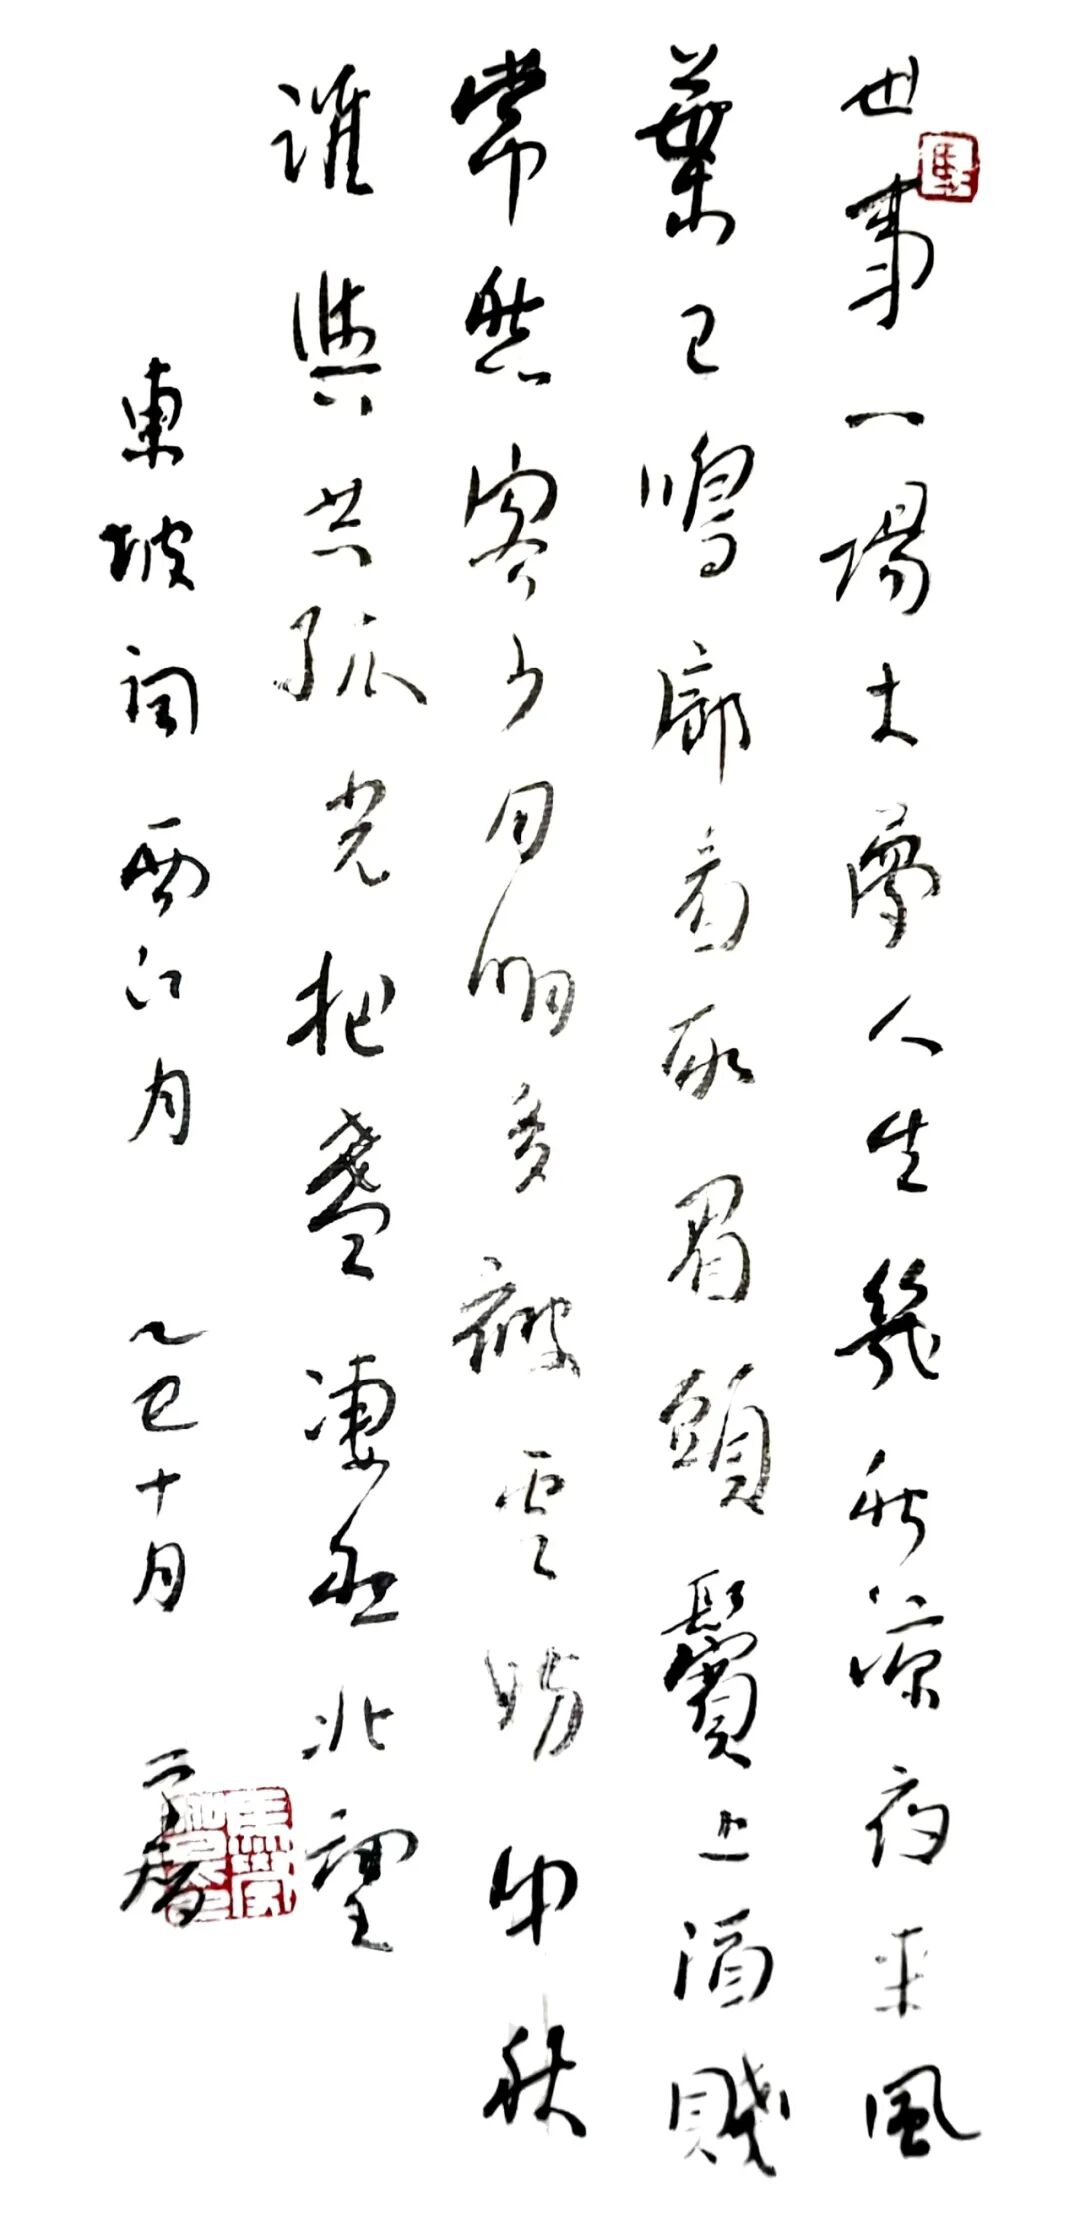 世事一場大夢人生幾秋涼夜來風
葉已鳴廊看取眉頭鬢上酒賤
常愁客少月明多被雲妨中秋
誰與共孤光把盞凄然北望
東坡詞西江月 乙巳十月